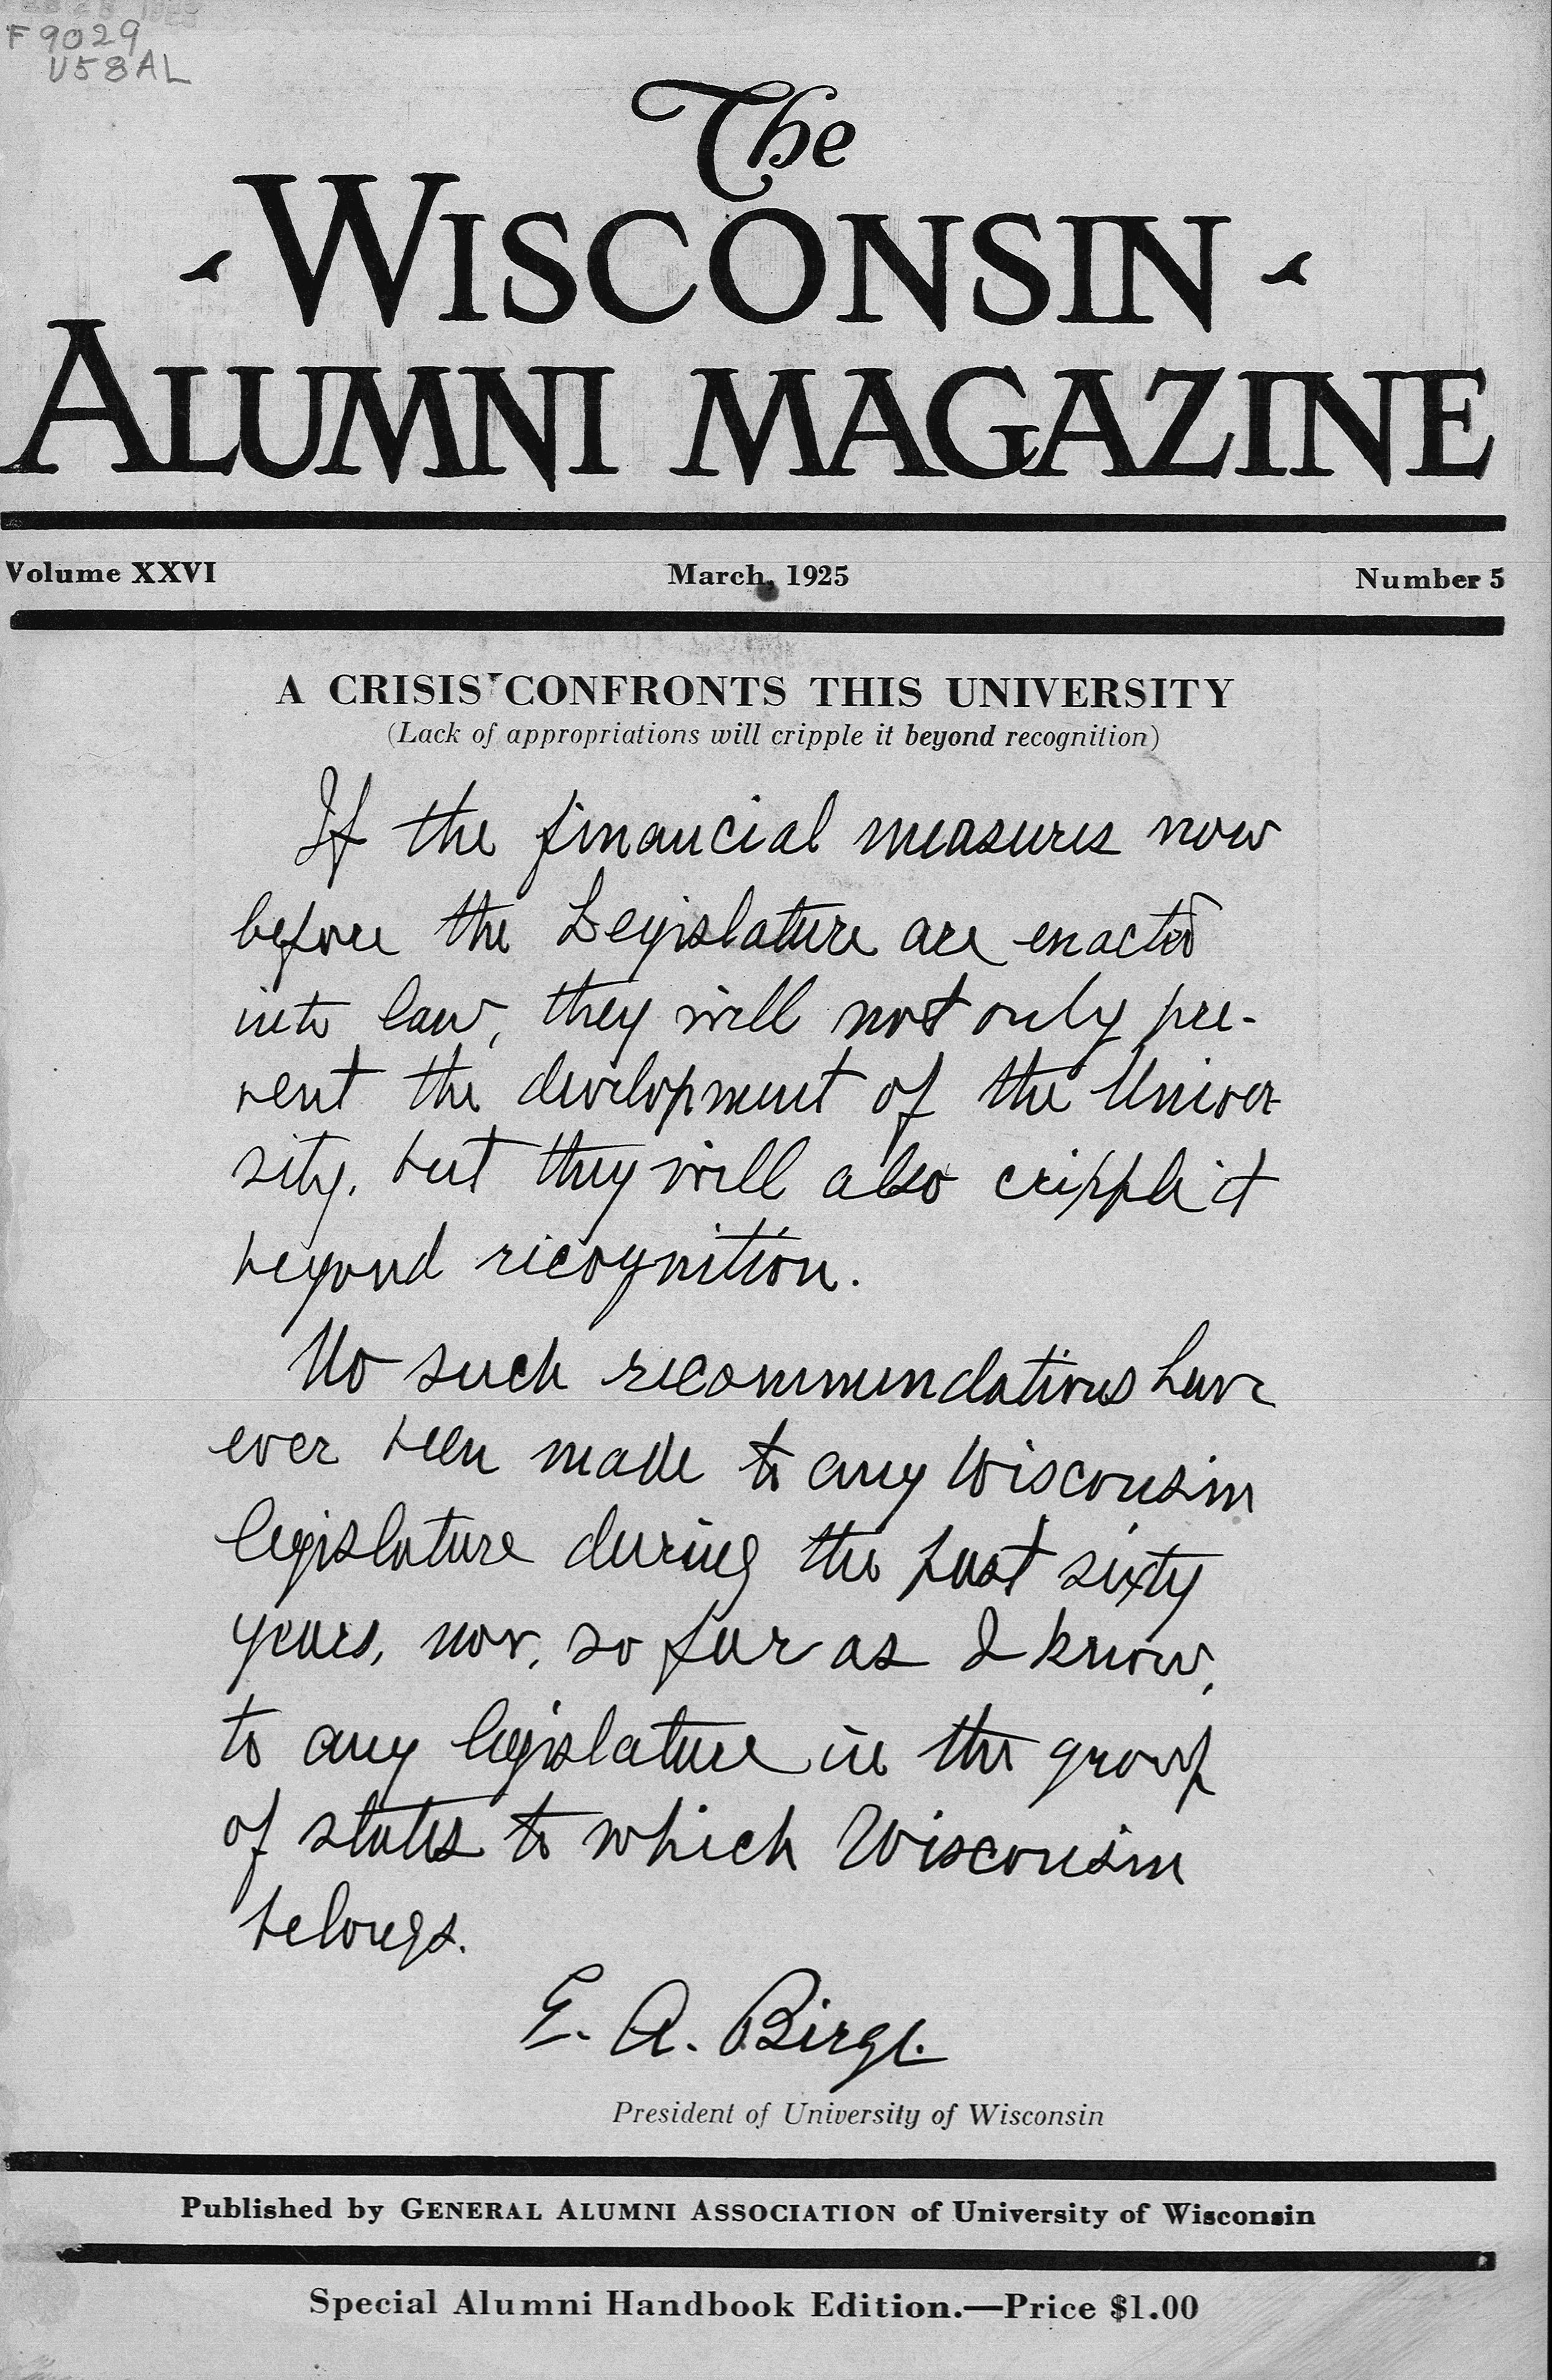 F9029
U58AL
The
WISCONSIN
ALUMNI MAGAZINE
Volume XXVI March, 1925 Number 5
A CRISIS CONFRONTS THIS UNIVERSITY
(Lack of appropriations will cripple it beyond recognition)
If the financial measures now
before the Legislature are enacted
into law, they will not only pre-
vent the development of the Univer-
sity, but they will also cripple it
beyond recognition.
No such recommendations have
ever been made to any Wisconsin
legislature during the past sixty
years, nor, so far as I know,
to any legislature in the group
of states to which Wisconsin
belongs.
E. A. Birge.
President of University of Wisconsin
Published by GENERAL ALUMNI ASSOCIATION of University of Wisconsin
Special Alumni Handbook Edition.—Price $1.00